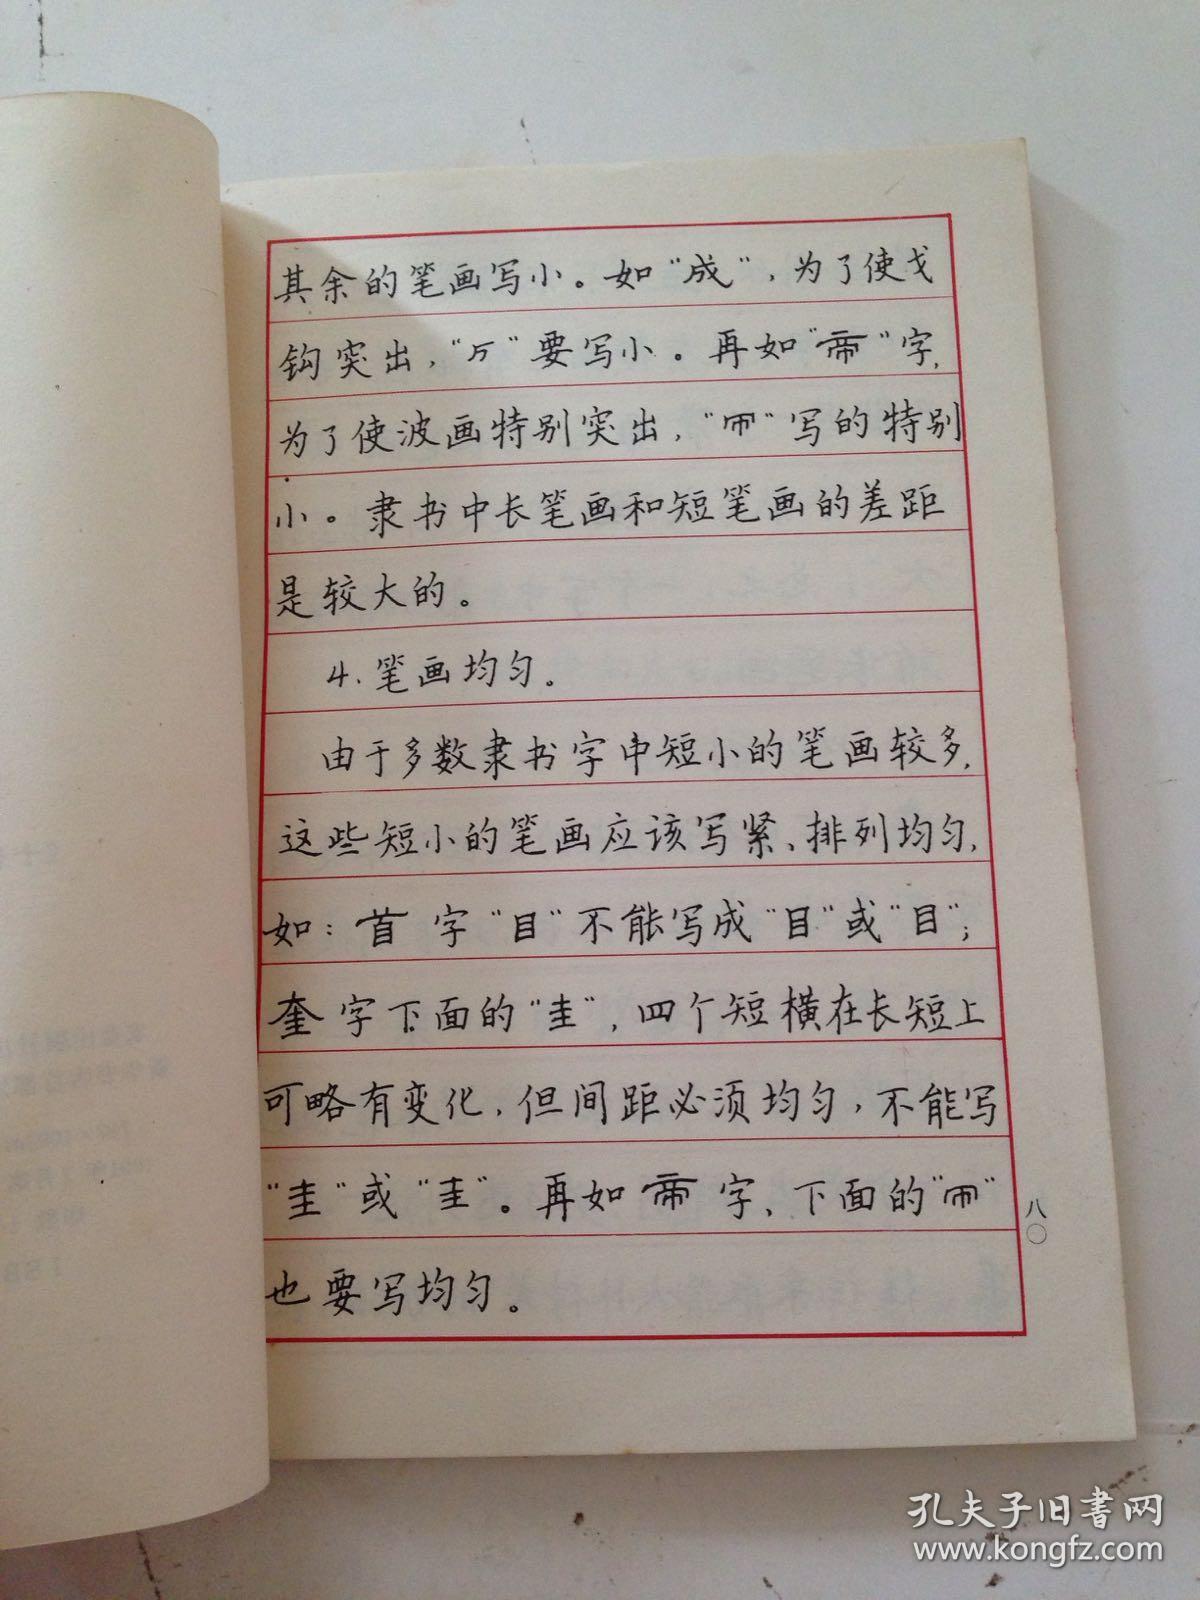 其余的笔画写小。如“成”,为了使戈
钩突出,“𠂆”要写小。再如“帝”字,
为了使波画特别突出,“帀”写的特别
小。隶书中长笔画和短笔画的差距
是较大的。
4.笔画均匀。
由于多数隶书字中短小的笔画较多,
这些短小的笔画应该写紧、排列均匀,
如:首字“目”不能写成“目”或“目”;
奎字下面的“圭”,四个短横在长短上
可略有变化,但间距必须均匀,不能写
“圭”或“圭”。再如帝字、下面的“帀”
也要写均匀。
八〇
孔夫子旧书网
www.kongfz.com